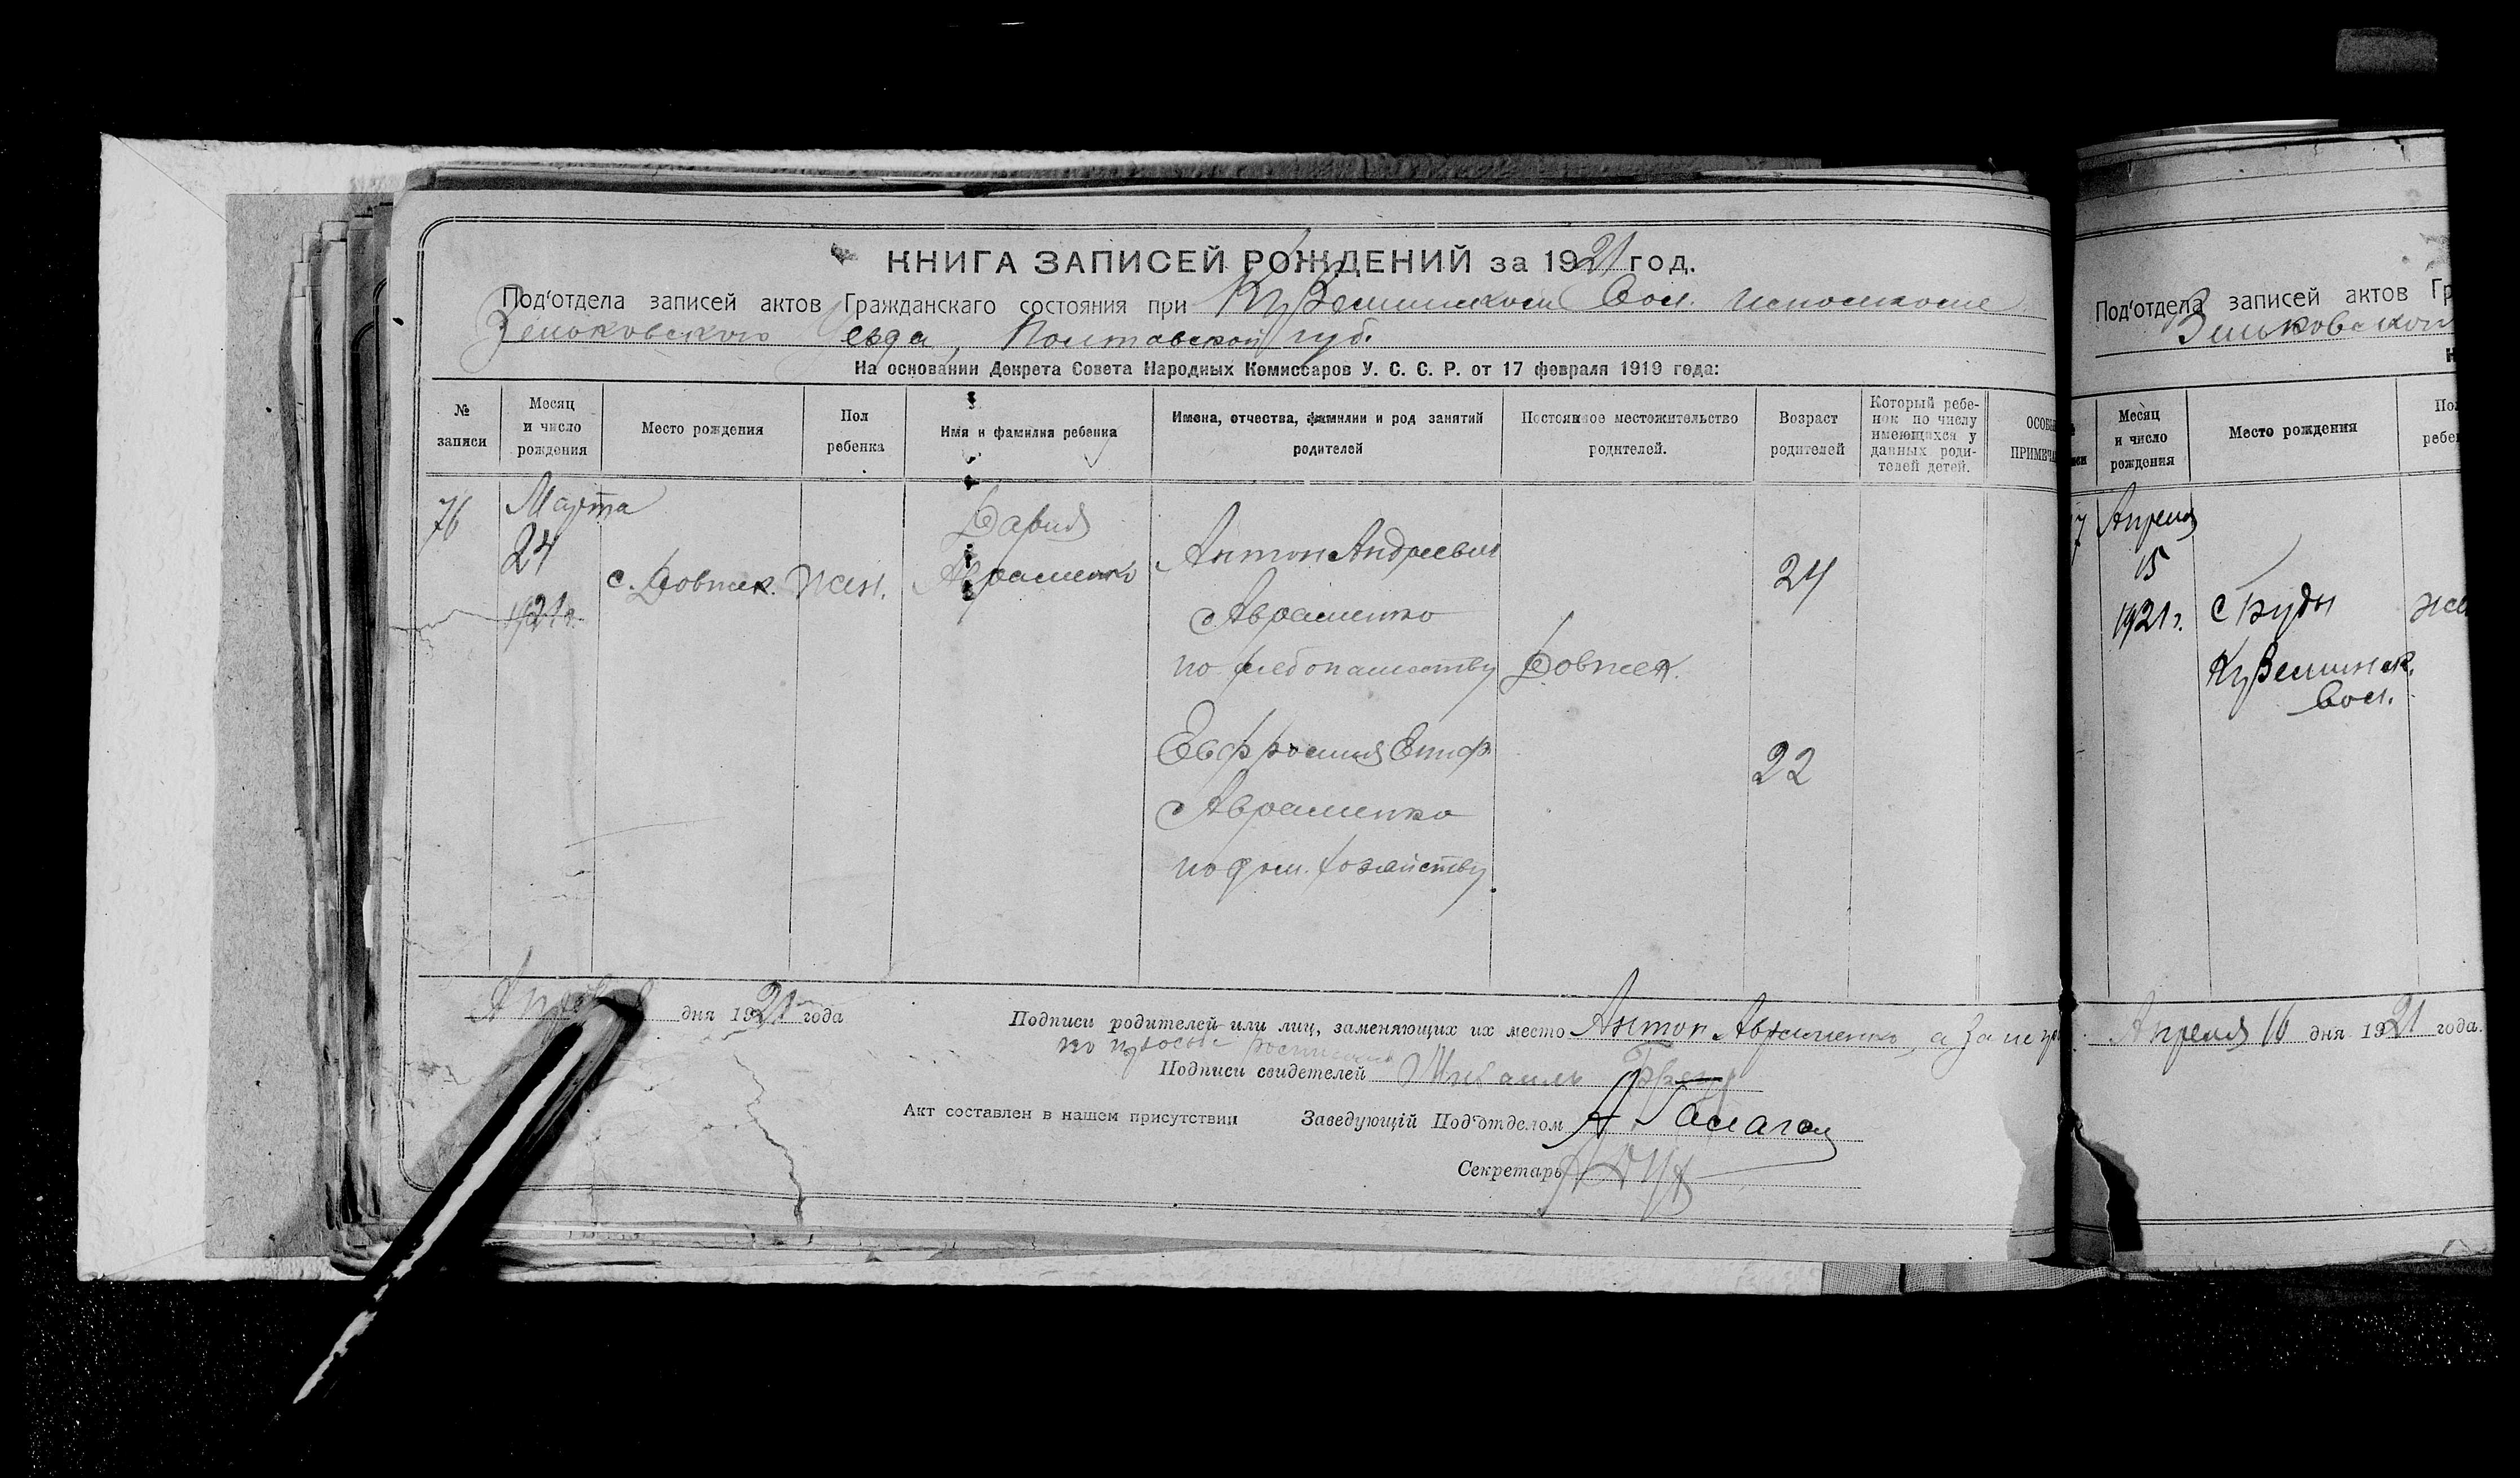 КНИГА ЗАПИСЕЙ РОЖДЕНИЙ за 1921 год.
Под'отдела записей актов Гражданскаго состояния при Куземинском Вол. исполкоме
Зеньковского уезда, Полтавской губ.
На основании Декрета Совета Народных Комиссаров У. С. С. Р. от 17 февраля 1919 года:
№ записи
Месяц и число рождения
Место рождения
Пол ребенка
Имя и фамилия ребенка
Имена, отчества, фамилии и род занятий родителей
Постоянное местожительство родителей.
Возраст родителей
Который ребенок по числу имеющихся у данных родителей детей.
76
Марта
24
1921 г.
с. Довжек.
жен.
Дария
Авраменко
Антон Андреевич
Авраменко
по хлебопашеству
Евфросиния Епиф.
Авраменко
по дом. хозяйству
Довжек.
24
22
дня 1921 года
Подписи родителей или лиц, заменяющих их место Антон Авраменко, а за негр
по просьбе росписался
Подписи свидетелей Михаил
Акт составлен в нашем присутствии
Заведующій Под'отделом А. Галаган
Секретарь
Под'отдела записей актов Гр
Зеньковского
Месяц и число рождения
Место рождения
Апреля
15
1921 г.
с Груды
Куземинск.
Вол.
Апреля 16 дня 1921 года.